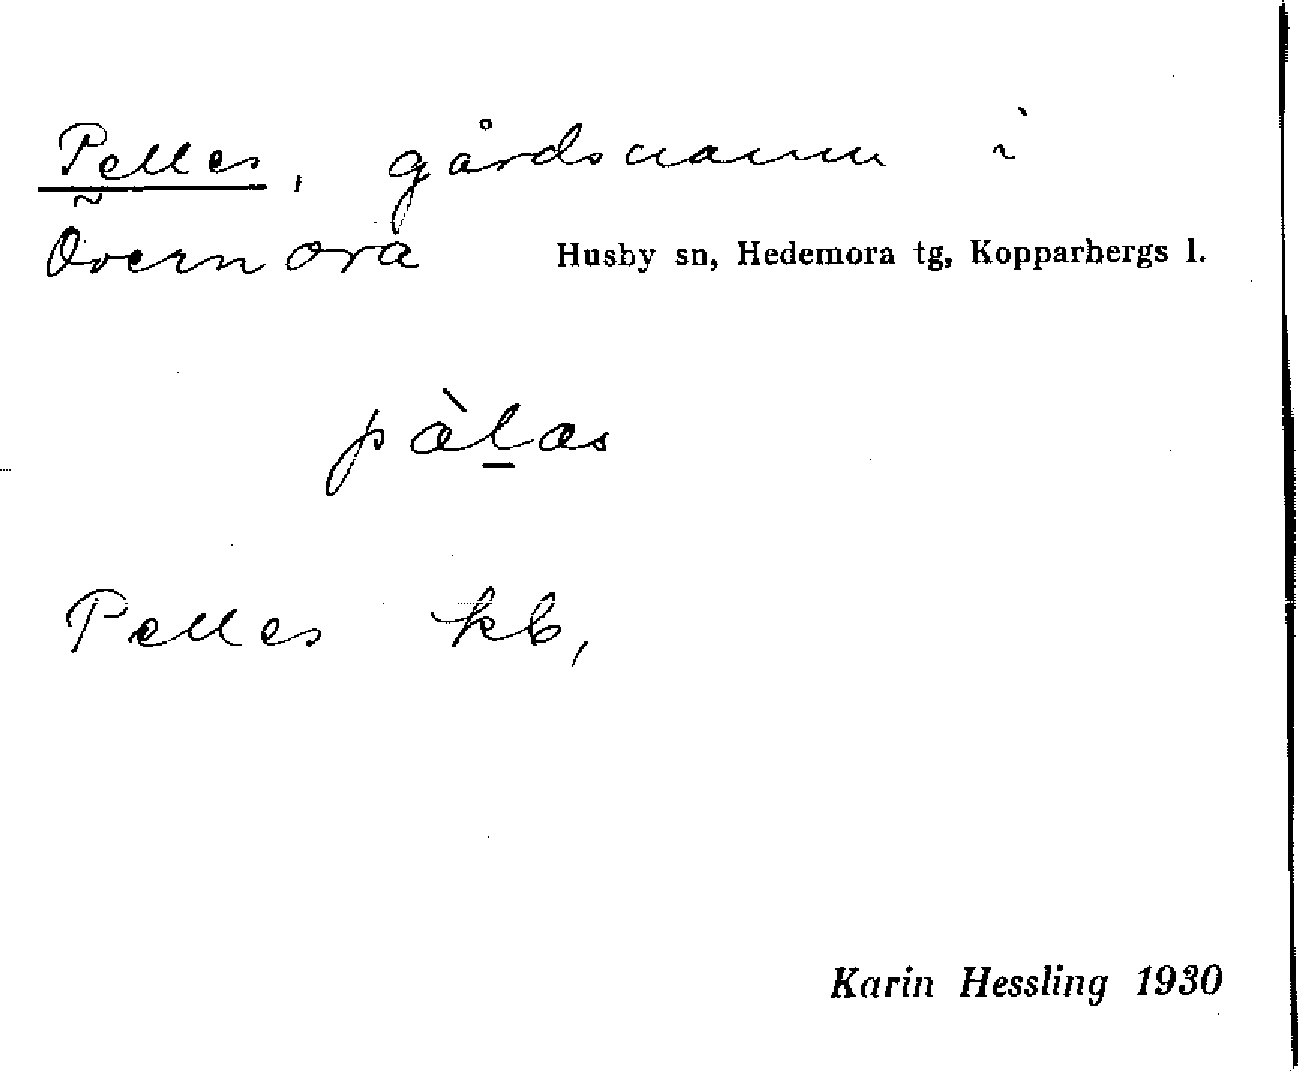 Pelles, gårdsnamn i
Övernora Husby sn, Hedemora tg, Kopparbergs l.
pæ̀l̠as
Pelles kb,
Karin Hessling 1930